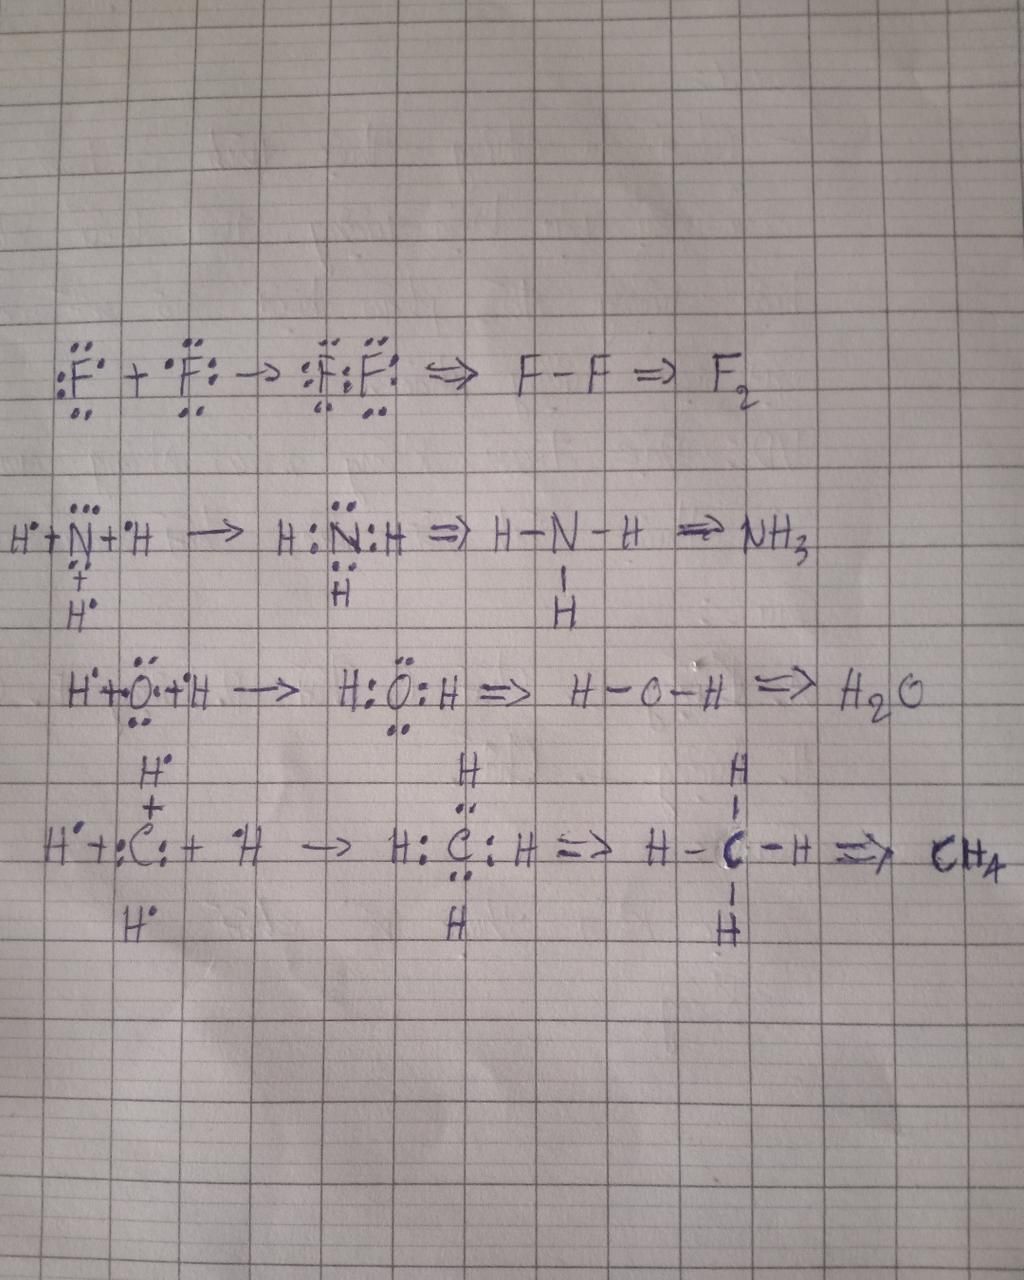 :F̤̈· + ·F̤̈: → :F̤̈:F̤̈: ⇒ F–F ⇒ F₂
H· + N + ·H → H:N̤̈:H ⇒ H–N–H ⇒ NH₃
+
H· H | H
H· + ·Ö̤· + ·H → H:Ö̤:H ⇒ H–O–H ⇒ H₂O
H· H H
+ ¨ |
H· + :C: + ·H → H:C̤:H ⇒ H–C–H ⇒ CH₄
|
H· H H